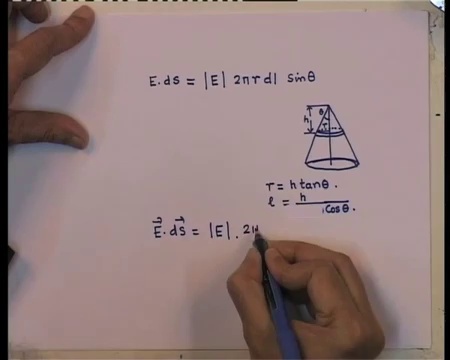 E. ds = |E| 2πr dl sinθ
h θ
r
r = h tanθ.
l = h / cosθ.
E⃗. ds⃗ = |E|. 2